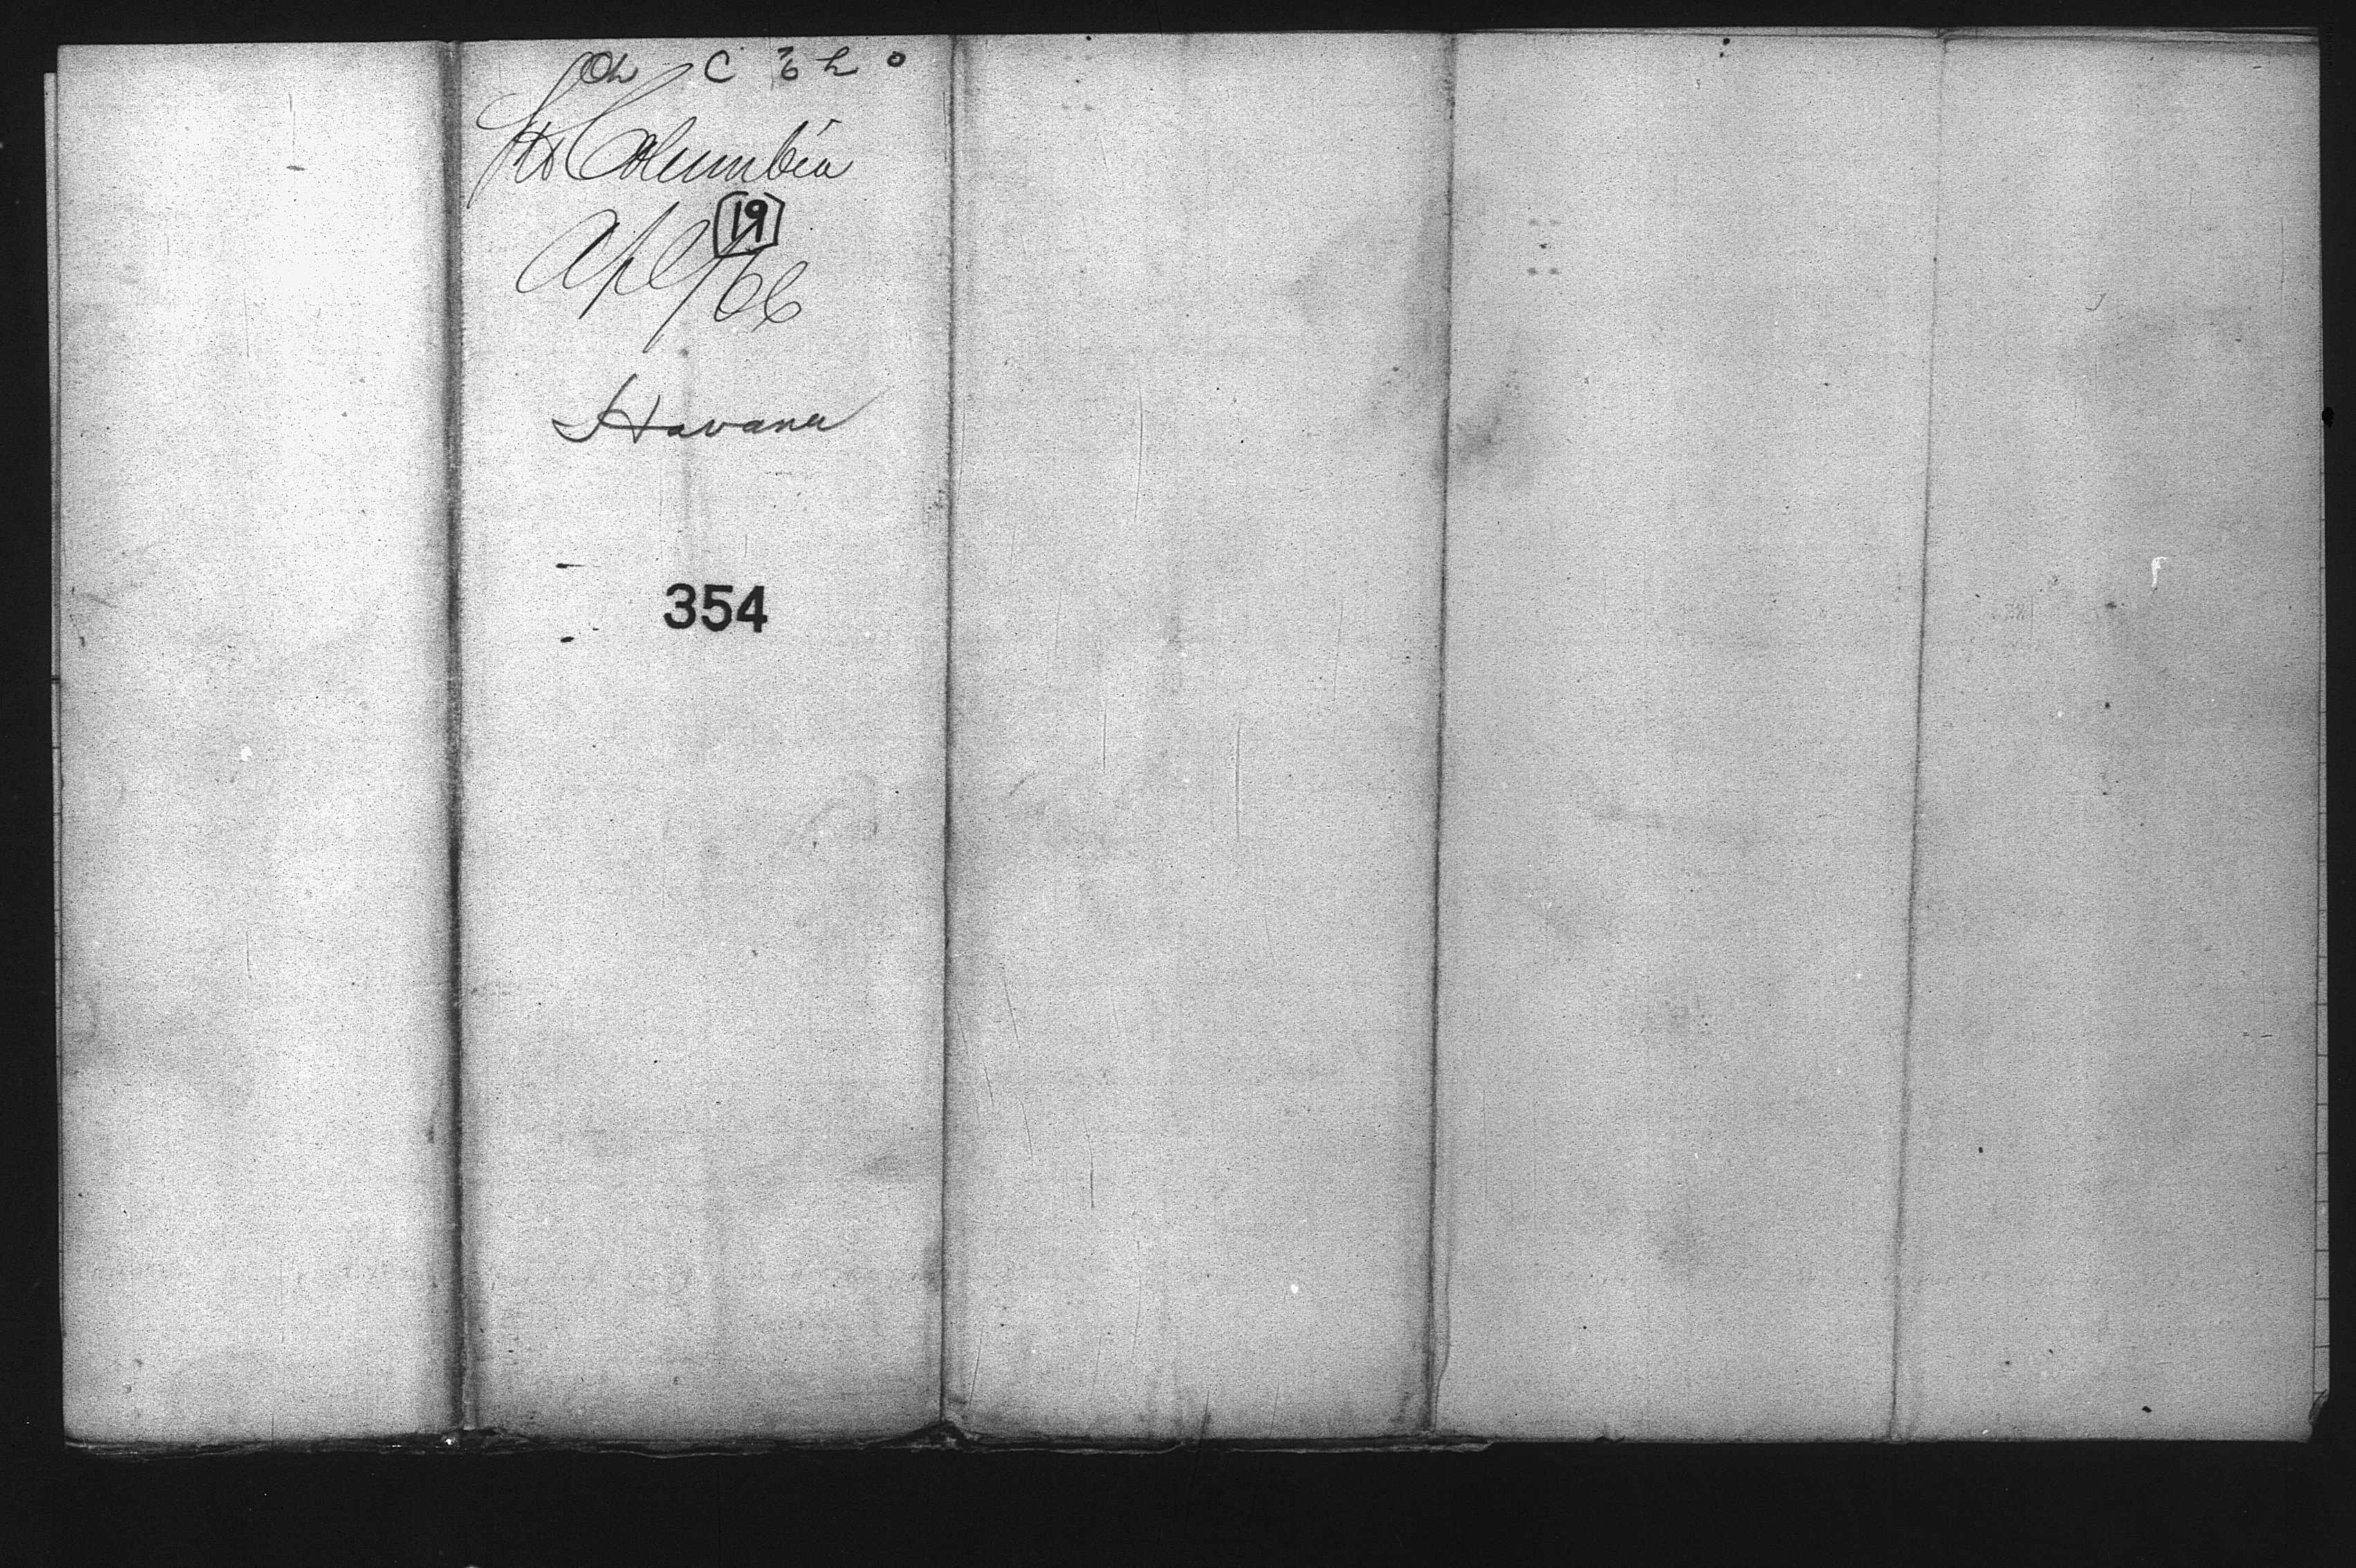 Str Columbia
[19]
Apl/66
Havana
354